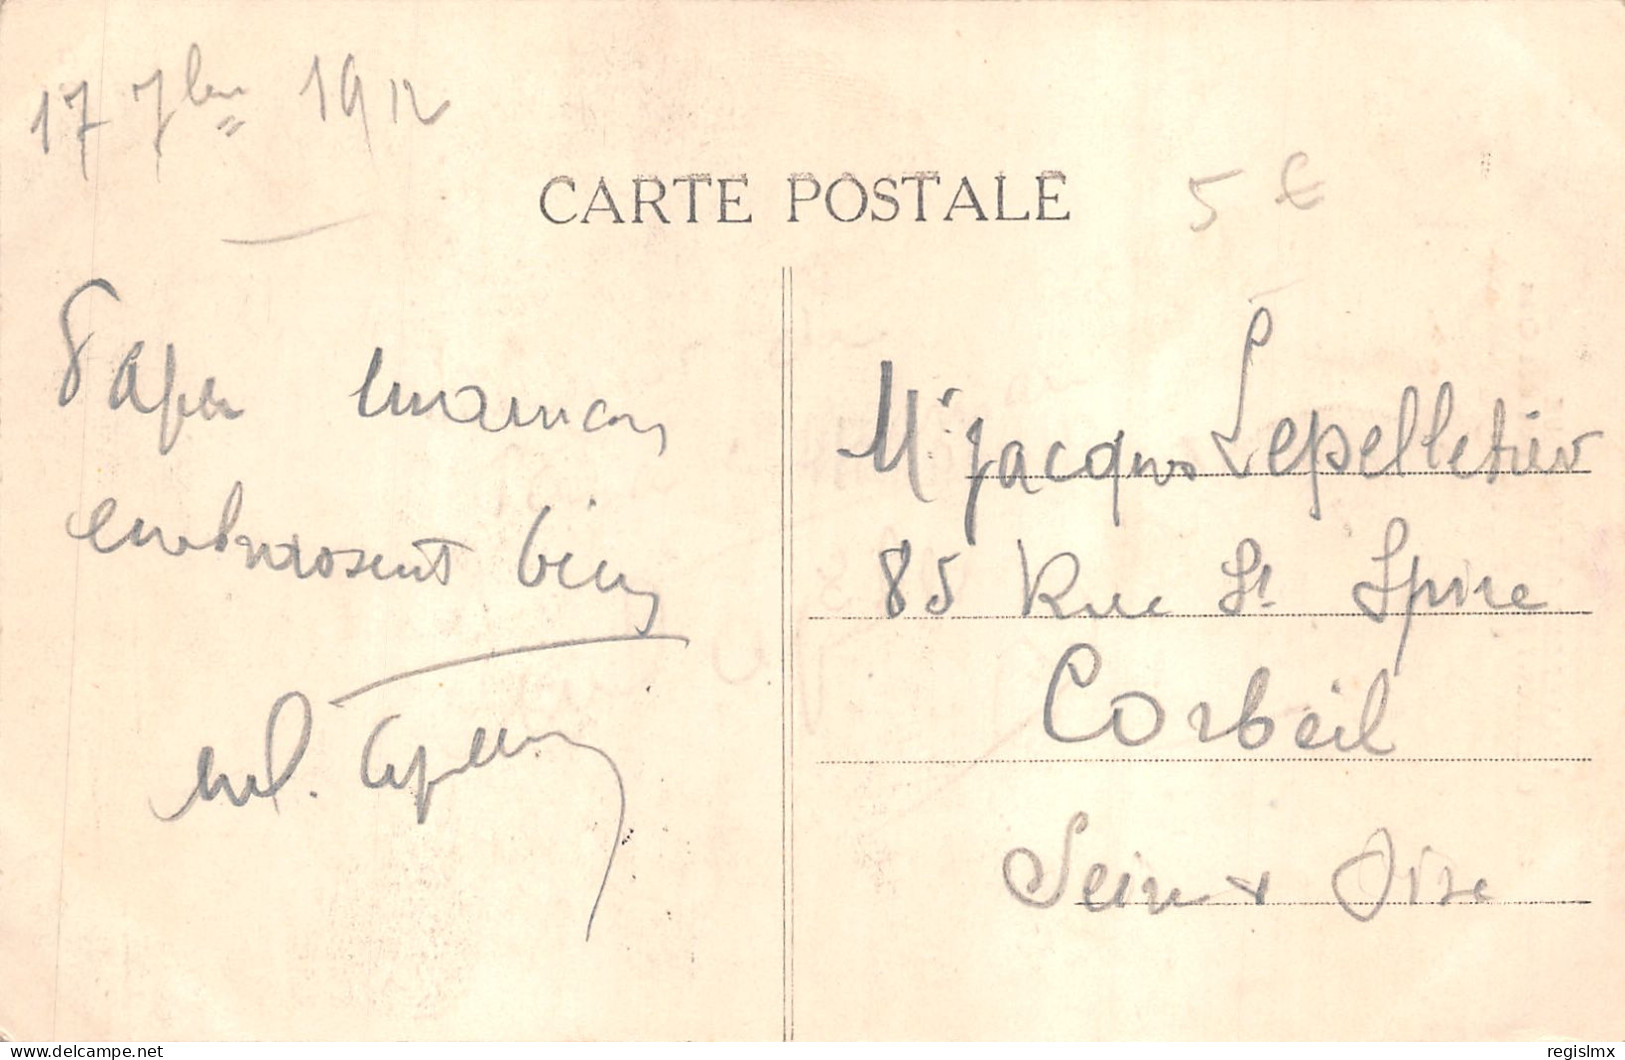 17 7bre 1912
CARTE POSTALE
5 €
Papa maman
embrassent bien
Mr Jacques Lepelletier
85 Rue St Spire
Corbeil
Seine & Oise
delcampe.net
regislmx